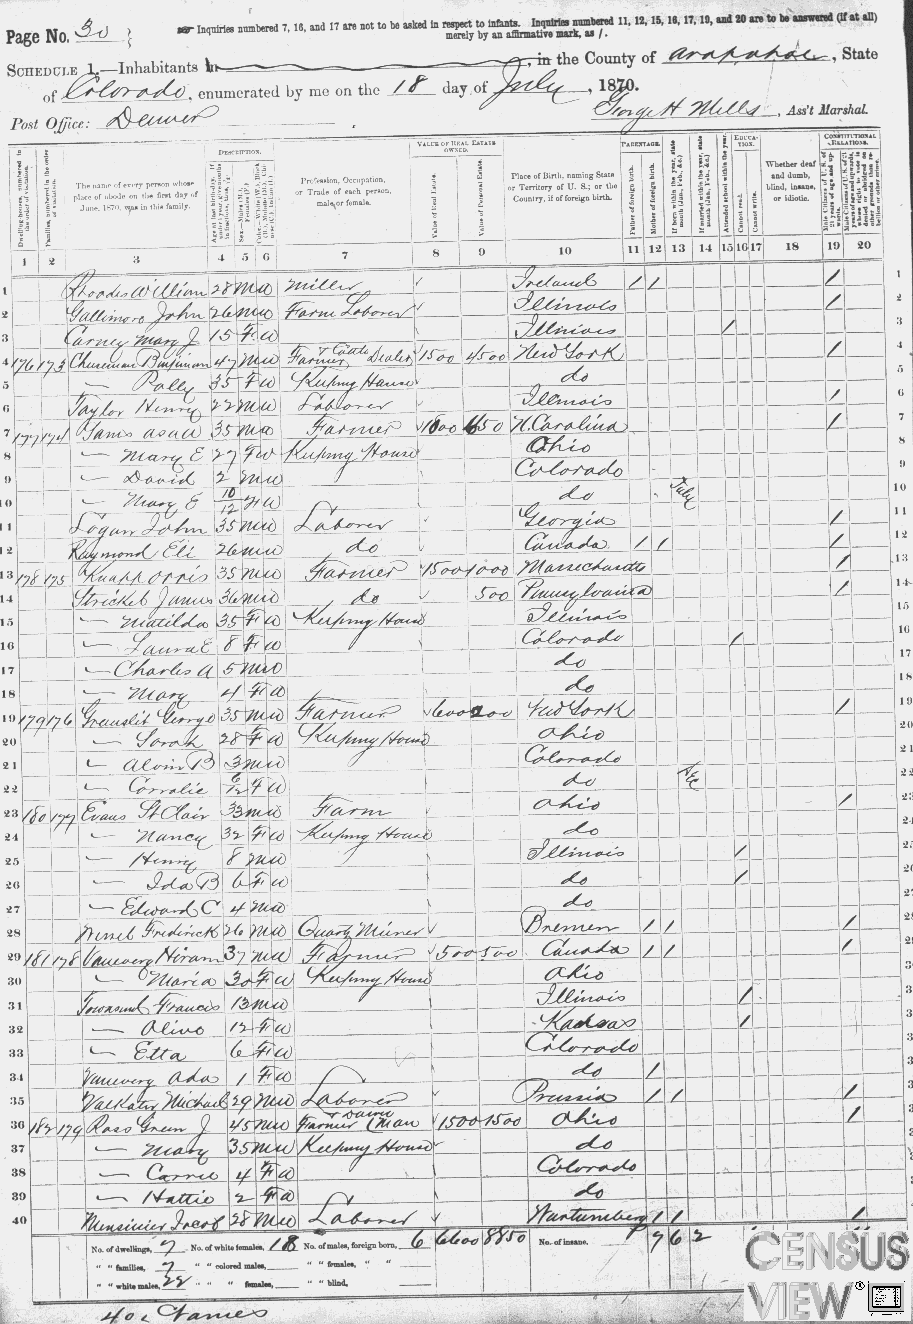 Page No. 30
Inquiries numbered 7, 16, and 17 are not to be asked in respect to infants. Inquiries numbered 11, 12, 15, 16, 17, 19, and 20 are to be answered (if at all)
merely by an affirmative mark, as /.
SCHEDULE 1.—Inhabitants in, in the County of Arapahoe, State
of Colorado, enumerated by me on the 18 day of July, 1870.
Post Office: Denver
George H Mills, Ass't Marshal.
DESCRIPTION. VALUE OF REAL ESTATE OWNED. PARENTAGE. EDUCATION. CONSTITUTIONAL RELATIONS.
The name of every person whose place of abode on the first day of June, 1870, was in this family.
Profession, Occupation, or Trade of each person, male or female.
Value of Real Estate.
Value of Personal Estate.
Place of Birth, naming State or Territory of U. S.; or the Country, if of foreign birth.
Father of foreign birth.
Mother of foreign birth.
Attended school within the year.
Cannot read.
Cannot write.
Whether deaf and dumb, blind, insane, or idiotic.
1 2 3 4 5 6 7 8 9 10 11 12 13 14 15 16 17 18 19 20
1 Rhoades William 28 M W Miller Ireland / / /
2 Gallimore John 26 M W Farm Laborer Illinois /
3 Carney Mary J 15 F W Illinois /
4 176 173 Benjiman 47 M W Farmer & Cattle Dealer 1500 4500 New York /
5 — Polly 35 F W Keeping House do
6 Taylor Henry 22 M W Laborer Illinois /
7 177 174 35 M W Farmer 650 N. Carolina /
8 — Mary E 27 F W Keeping House Ohio
9 — David 2 M W Colorado
10 — Mary E 10/12 F W do July
11 Logan John 35 M W Laborer Georgia /
12 Raymond Eli 26 M W do Canada / / /
13 178 175 Knapp Orris 35 M W Farmer 1500 1000 Massachusetts /
14 Strickel James 36 M W do 500 Pennsylvania /
15 — Matilda 35 F W Keeping House Illinois
16 — Laura E 8 F W Colorado /
17 — Charles A 5 M W do
18 — Mary 4 F W do
19 179 176 George 35 M W Farmer 600 200 New York /
20 — Sarah 28 F W Keeping House Ohio
21 — Alvin B 3 M W Colorado
22 — Corralie 6/12 F W do Dec
23 180 177 Evans St Clair 33 M W Farm Ohio /
24 — Nancy 32 F W Keeping House do
25 — Henry 8 M W Illinois /
26 — Ida B 6 F W do /
27 — Edward C 4 M W do
28 Frederick 26 M W Quartz Miner Bremen / / /
29 181 178 Vanevery Hiram 37 M W Farmer 500 500 Canada / / /
30 — Maria 30 F W Keeping House Ohio
31 Townsend Francis 13 M W Illinois /
32 — Olive 12 F W Kansas /
33 — Etta 6 F W Colorado
34 Vanevery Ada 1 F W do /
35 Michael 29 M W Laborer Prussia / / /
36 182 179 Ross Green J 45 M W Farmer & Dairy Man 1500 1500 Ohio /
37 — Mary 35 M W Keeping House do
38 — Carrie 4 F W Colorado
39 — Hattie 2 F W do
40 Jacob 28 M W Laborer Wurtemberg / / /
No. of dwellings, 7 No. of white females, 18 No. of males, foreign born, 6 6600 8850 No. of insane. 7 6 2
" " families, 7 " " colored males, " " females, " "
" " white males, 22 " " " females, " " blind,
40 Names
CENSUS
VIEW®